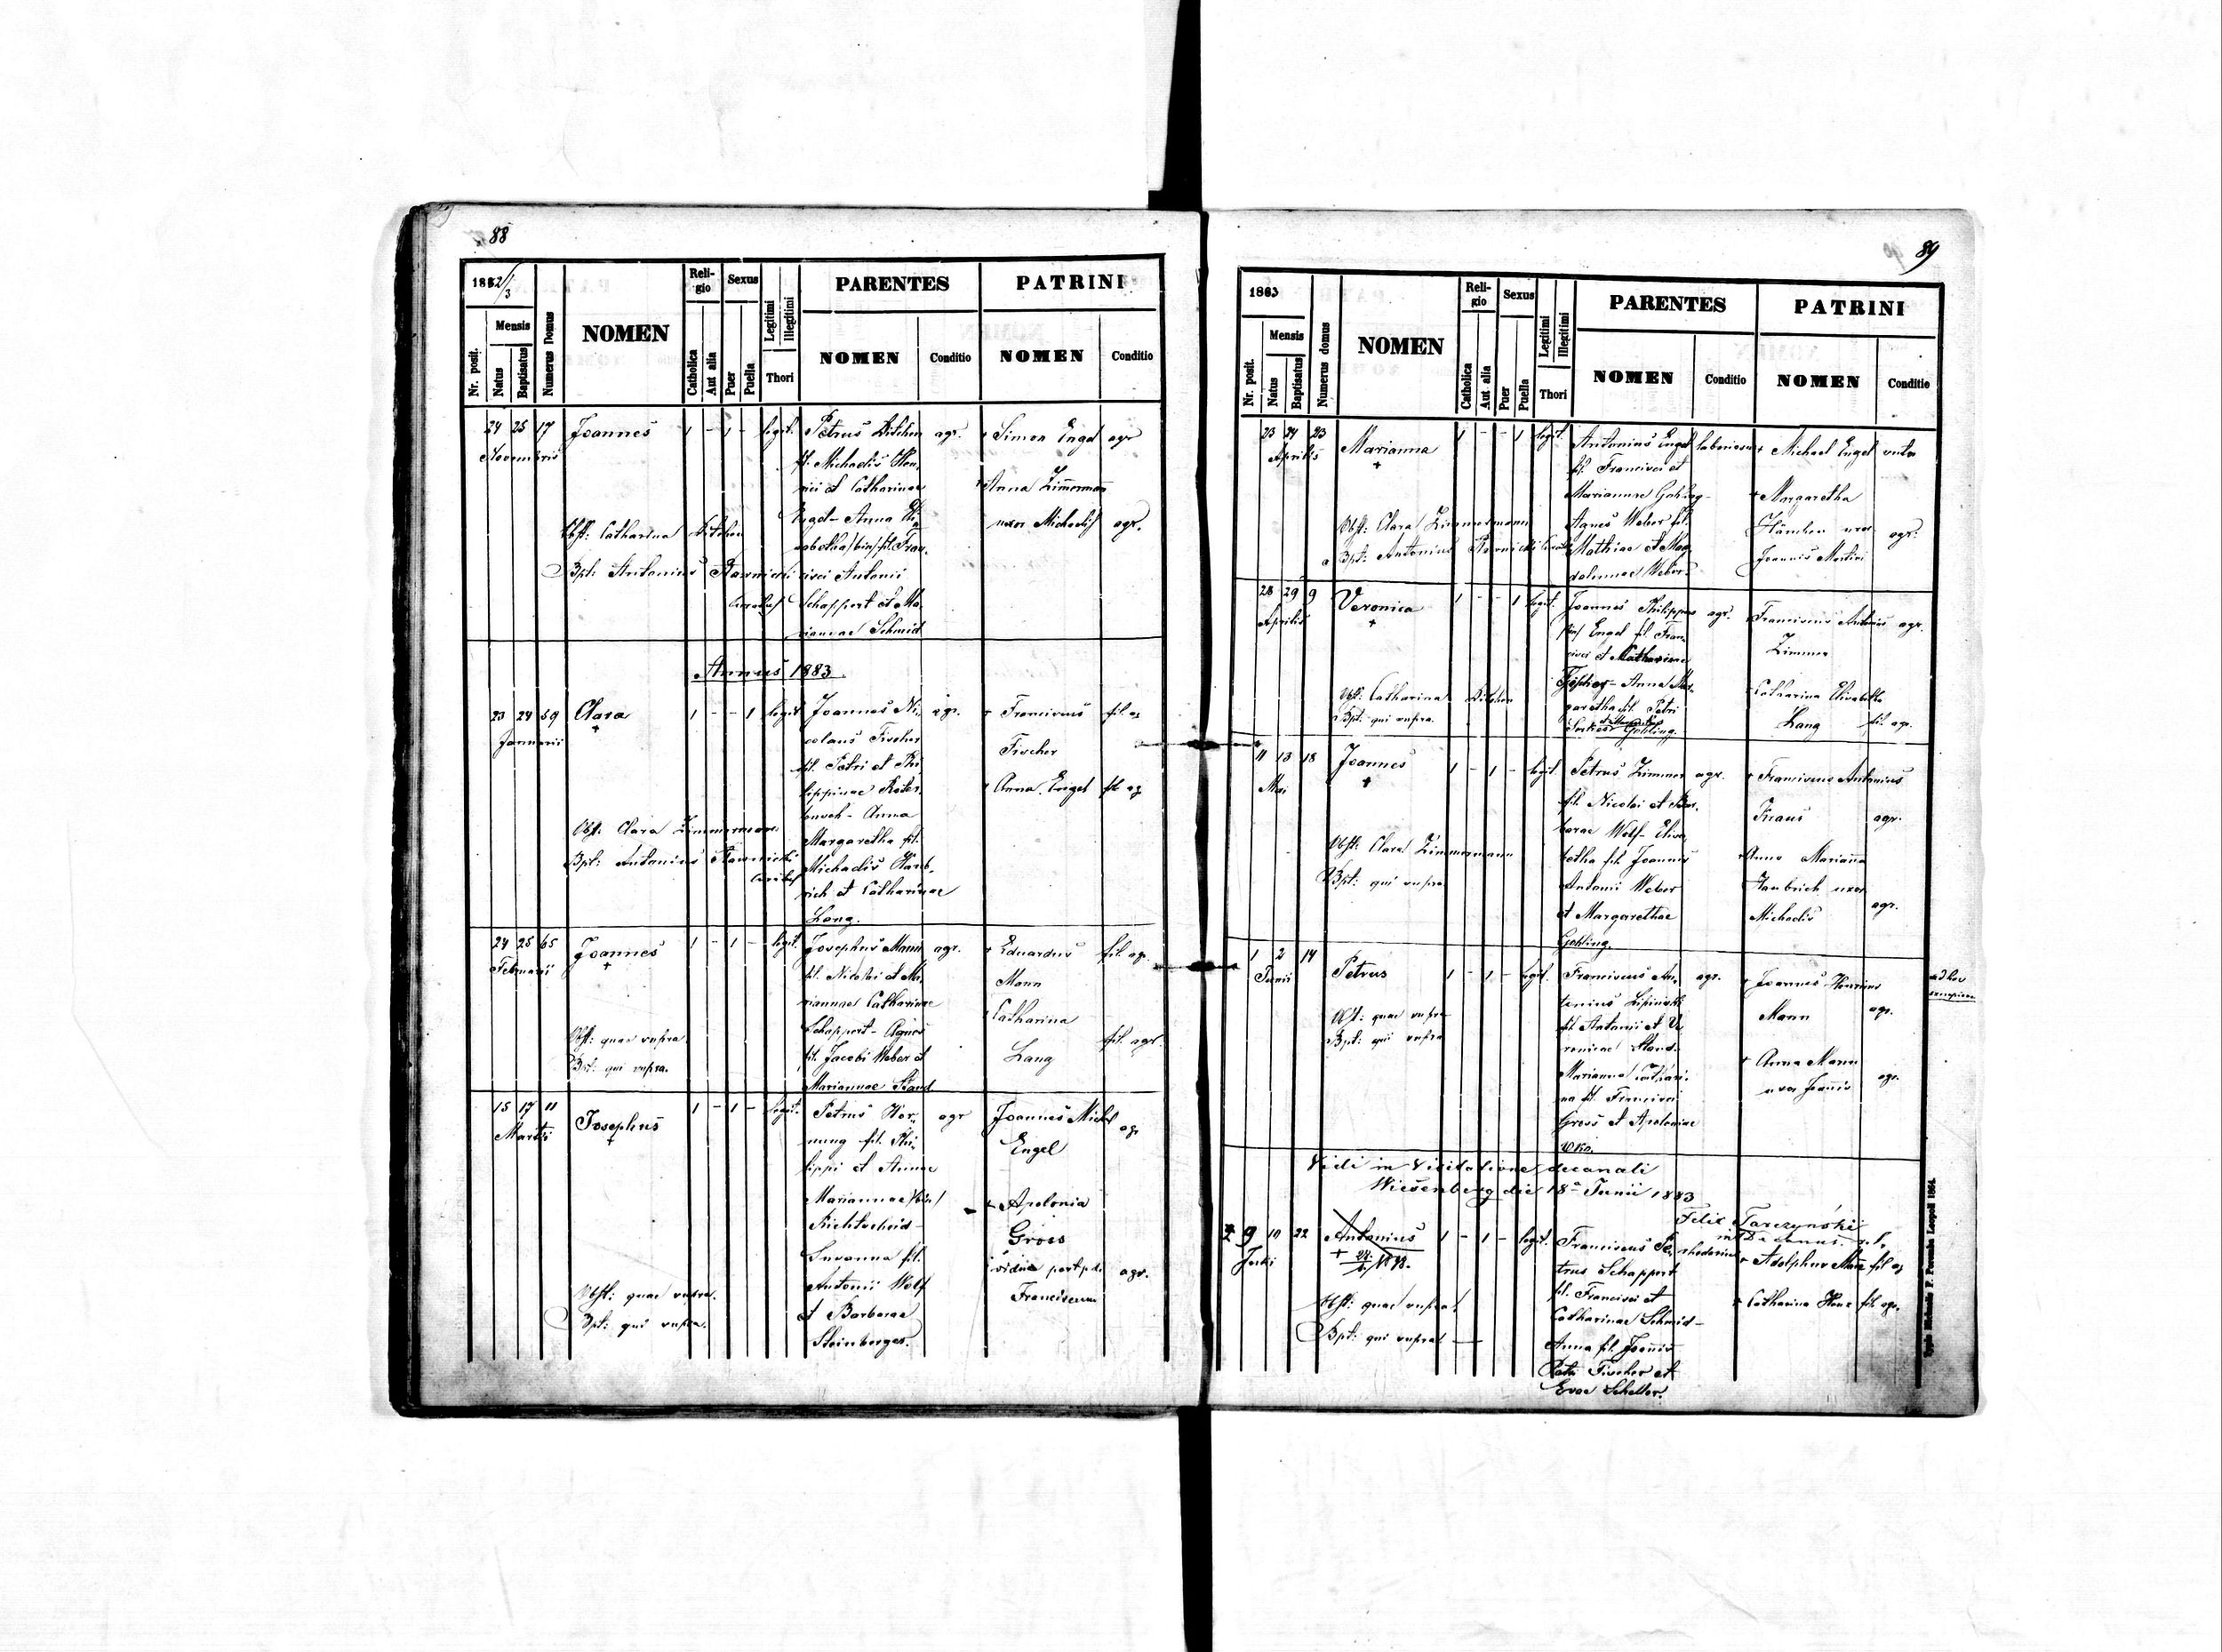 88
1882/3
Nr. posit.
Mensis
Natus
Baptisatus
Numerus Domus
NOMEN
Reli-
gio
Catholica
Aut alia
Sexus
Puer
Puella
Legitimi
Illegitimi
Thori
PARENTES
NOMEN
Conditio
PATRINI
NOMEN
Conditio
24 25 17 Joannes 1 - 1 - legit. Petrus agr. Simon Engel agr
Novembris
fil. Michaelis Hen-
rici et Catharinae Anna Zimmerman
Engel - Anna Eli- uxor Michaelis agr.
Obst: Catharina
sabetha /bin/ fil. Fran-
Bpt: Antonius cisci Antonii
Schappert et Ma-
riannae Schmid
Annus 1883.
23 24 59 Clara 1 - - 1 legit Joannes Ni- agr. Franciscus fil ag
Januarii
colaus Fischer Fischer
fil. Petri et Phi-
lippinae Anna Engel fil ag
Anna
Obst: Clara Zimmermann
Margaretha fil.
Bpt: Antonius Michaelis Haub-
rich et Catharinae
Lang.
24 25 65 Joannes 1 - 1 - legit. Josephus Mann agr. Eduardus fil. agr.
Februarii
fil. Nicolai et Ma- Mann
riannae Catharinae Catharina
Schappert - Agnes fil. agr.
Obst: quae supra fil. Jacobi Weber et Lang
Bpt: qui supra.
Mariannae Staud
15 17 11 Josephus 1 - 1 - legit. Petrus Hor- agr Joannes Michel ag
Martii
nung fil. Phi- Engel
lippi et Annae
Mariannae /bin/ Apolonia
Richtscheid - Gross
Susanna fil. vidua post p.d. agr.
Antonii Wolf Franciscum
Obst: quae supra.
et Barbarae
Bpt: qui supra.
Steinberger.
89
1883
Nr. posit.
Mensis
Natus
Baptisatus
Numerus domus
NOMEN
Reli-
gio
Catholica
Aut alia
Sexus
Puer
Puella
Legitimi
Illegitimi
Thori
PARENTES
NOMEN
Conditio
PATRINI
NOMEN
Conditio
23 24 23 Marianna 1 - - 1 legit. Antonius Engel Michael Engel
Aprilis
fil. Francisci et
Mariannae Gohling - Margaretha
Obst: Clara Zimmermann Agnes Weber fil. uxor agr.
Bpt: Antonius Mathiae et Mag- Joannis Martini
dalenae Weber.
28 29 9 Veronica 1 - - 1 legit. Joannes Philippus agr. Franciscus Antonius agr.
Aprilis
Engel fil. Fran- Zimmer
cisci et Catharinae
Fischer - Anna Mar- Catharina Elisabetha
Obst: Catharina
garetha fil. Petri Lang fil. agr.
Bpt: qui supra.
Gohling.
11 13 18 Joannes 1 - 1 - legit. Petrus Zimmer agr. Franciscus Antonius
Mai
fil. Nicolai et Bar- Kraus agr.
barae Wolf - Elisa-
Obst: Clara Zimmermann betha fil. Joannis Anna Marianna
Bpt: qui supra Antonii Weber Haubrich uxor
et Margarethae Michaelis agr.
Gohling.
1 2 14 Petrus 1 - 1 - legit. Franciscus An- agr. Joannes Henricus
Junii
tonius Lipinski Mann agr.
Obst: quae supra fil. Antonii et Ve-
Bpt: qui supra ronicae Staud. Anna Mann
Marianna Cathari- uxor Joannis agr.
na fil. Francisci
Gross et Apoloniae
Vidi in Visitatione decanali
Wiesenberg die 18a Junii 1883
Felix Tarczyński
9 10 22 Antonius 1 - 1 - legit. Franciscus Pe- Adolphus Mann fil ag
Julii
trus Schappert
fil. Francisci et Catharina fil. agr.
Obst: quae supra Catharinae Schmid -
Bpt: qui supra Anna fil. Joannis
Petri Fischer et
Evae Scheller.
Typis Michaelis F. Poremba Leopoli 1864.